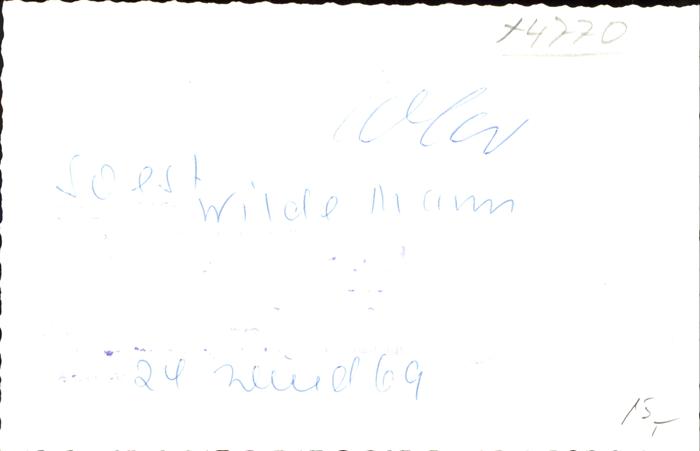 X4770
soest
Wilde Mann
24 69
15,-